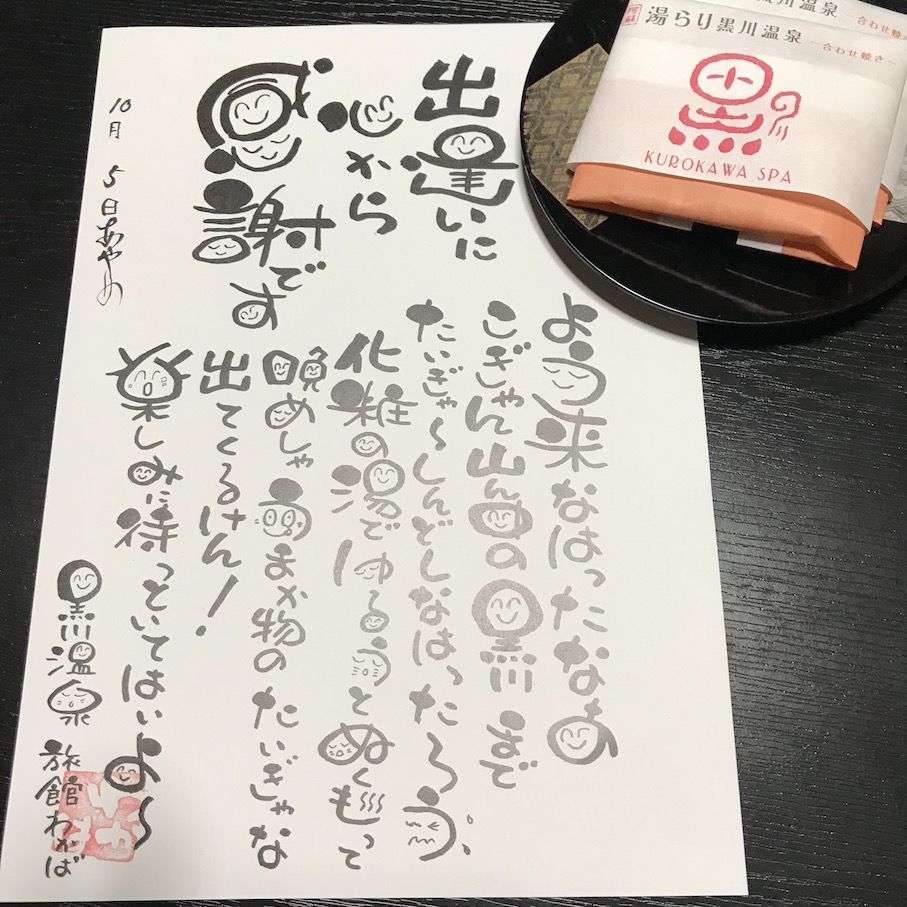 出逢いに
心から
感謝です
ようら来なはったなあ
こぎゃん山ん中の黒川まで
たいぎゃ〜しんどしなはったろう、
化粧の湯でゆるうとぬくもって
晩めしゃうまか物のたいぎゃな
出てくるけん！
楽しみに待っといてはいよ〜
黒川温泉
旅館わかば
10月 5日 あやめ
湯らり黒川温泉 ―合わせ焼き―
黒
KUROKAWA SPA